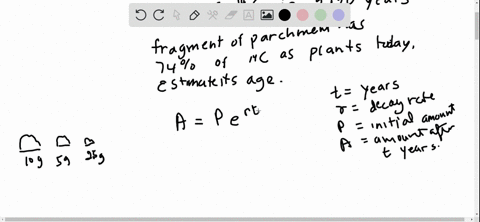 years
fragment of parchment has
74% of 14C as plants today,
estimate its age.
A = P e^rt
t = years
r = decay rate
P = initial amount
A = amount after
t years.
10g 5g 2.5g